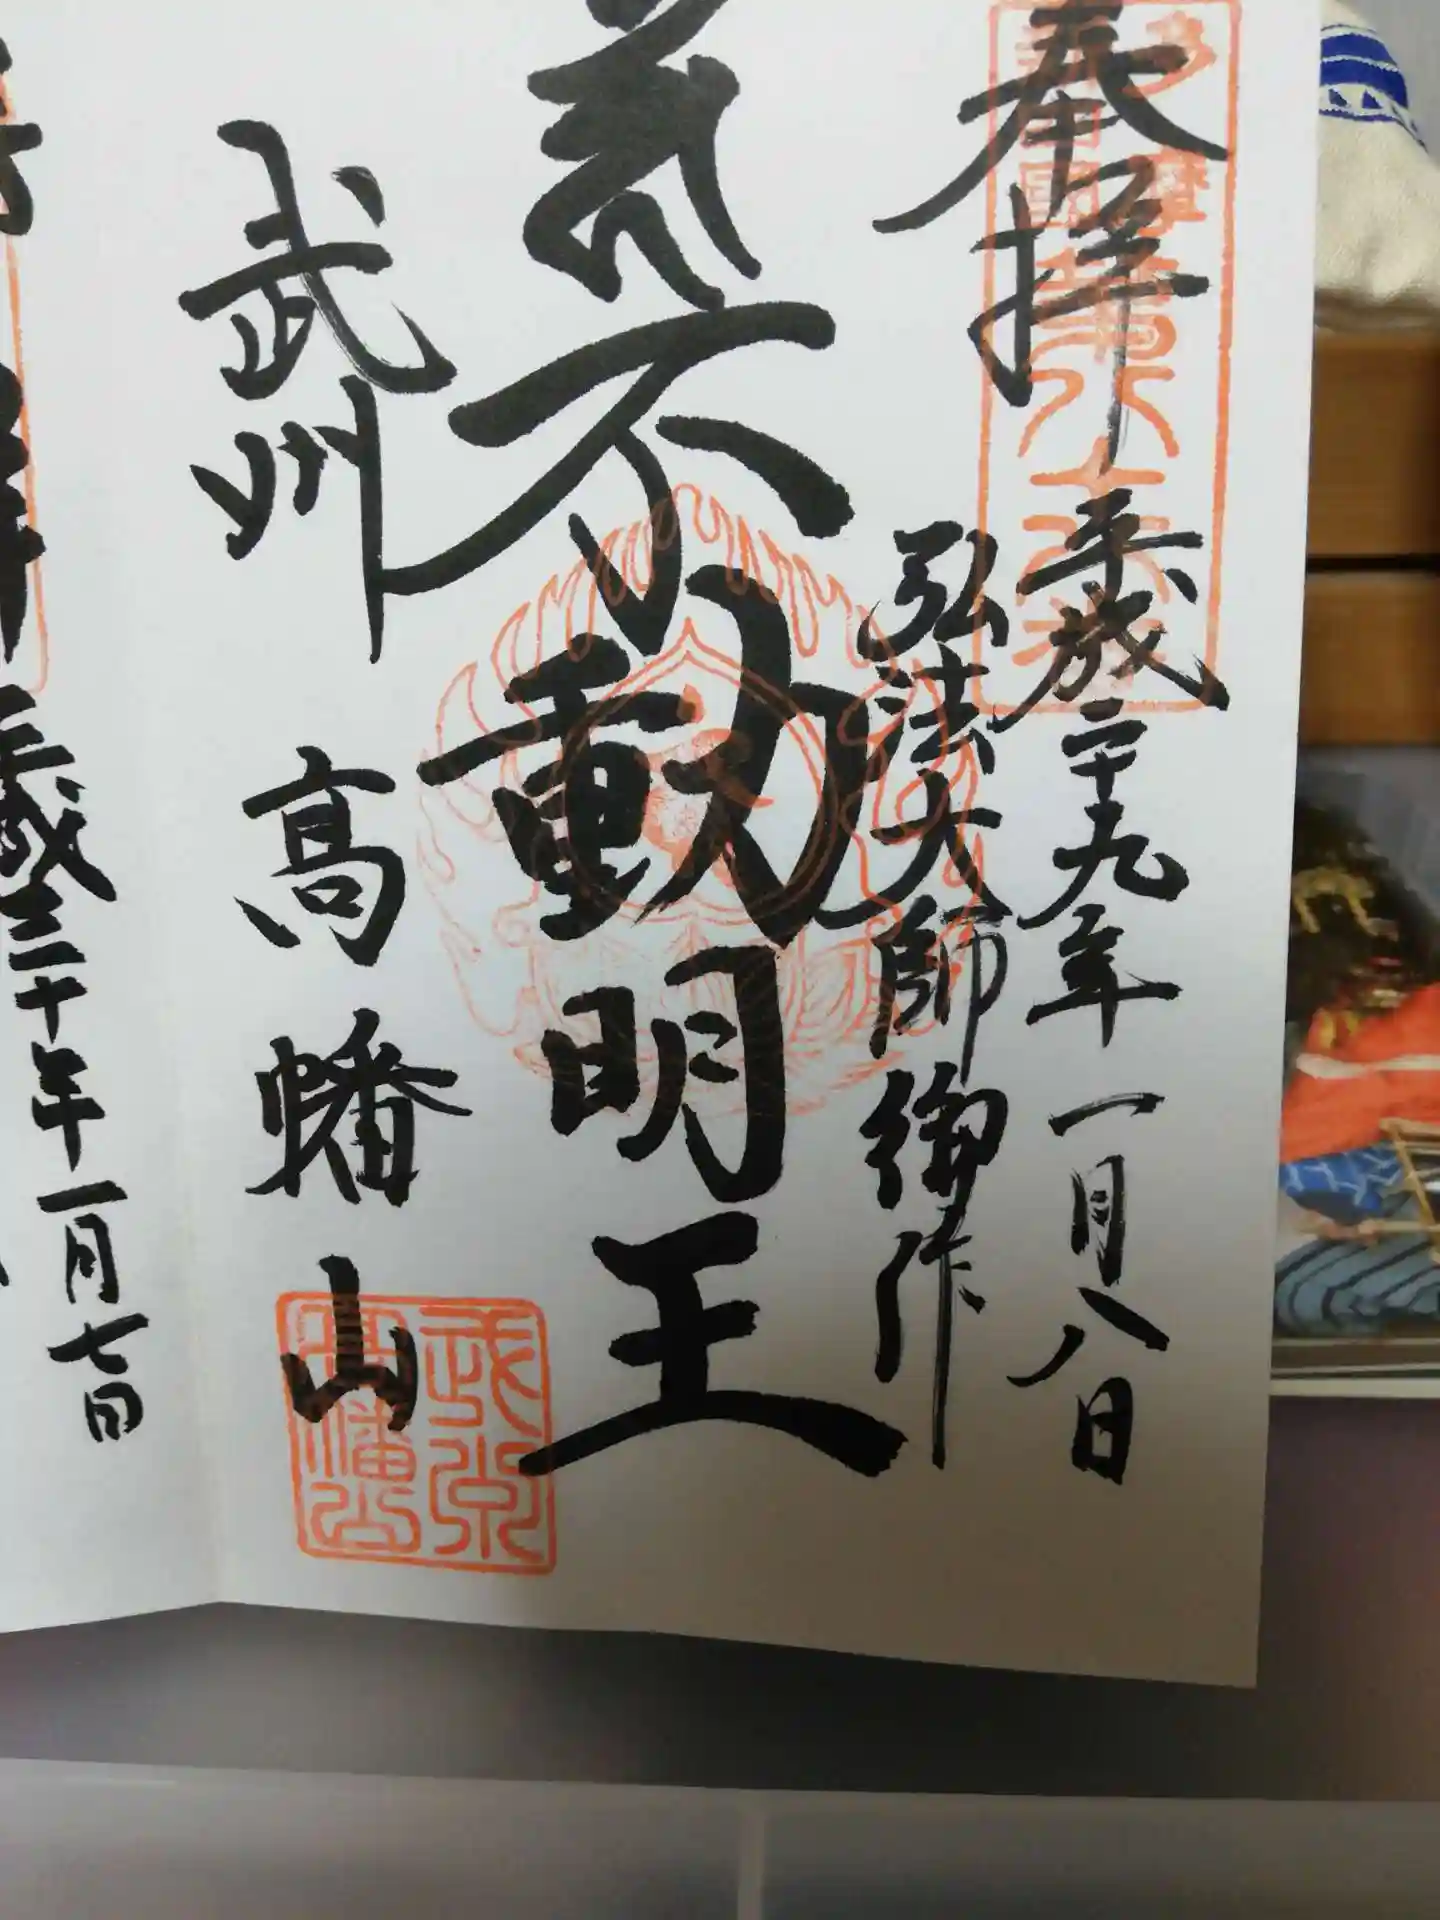 奉拝
平成二十九年一月八日
弘法大師御作
不動明王
武州
高幡山
武州
高幡山
平成三十年一月七日